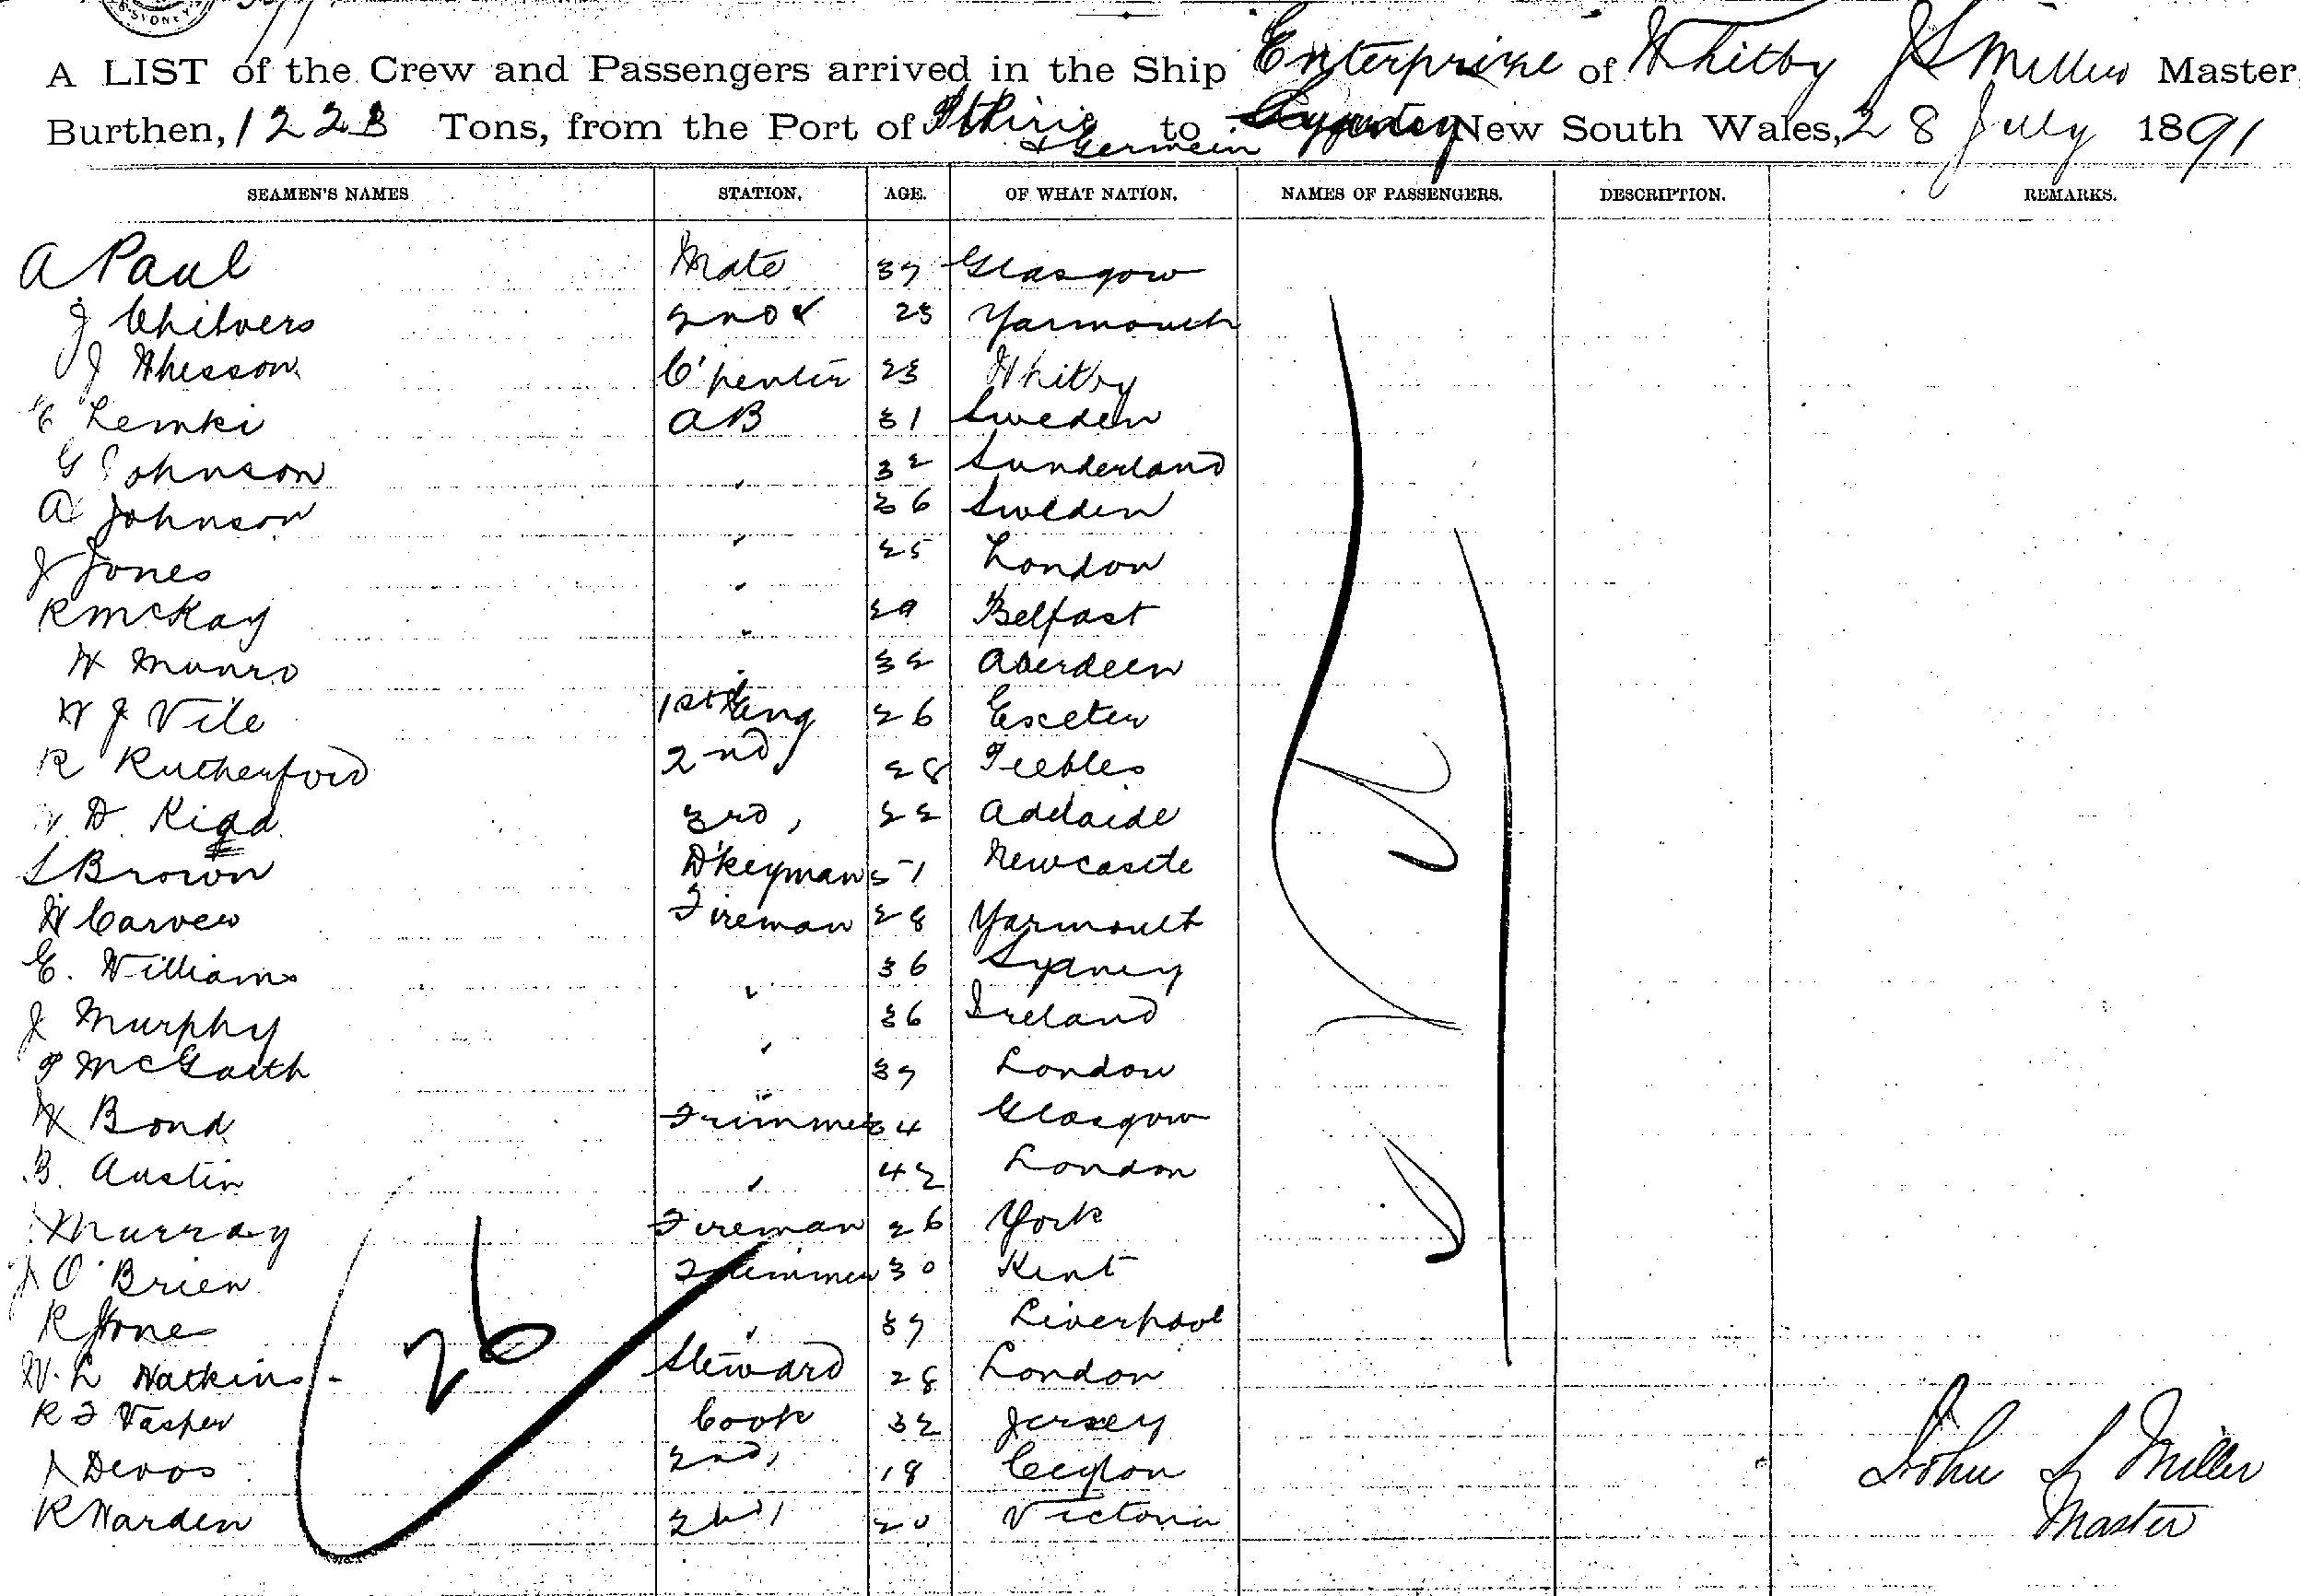 SYDNEY
A LIST of the Crew and Passengers arrived in the Ship Enterprise of Whitby J S Miller Master
Burthen, 1223 Tons, from the Port of Pt Pirie & Germein to Sydney New South Wales, 28 July 1891
SEAMEN'S NAMES STATION. AGE. OF WHAT NATION. NAMES OF PASSENGERS. DESCRIPTION. REMARKS.
A Paul Mate 37 Glasgow
J Chilvers 2nd 23 Yarmouth
J Whesson C'penter 23 Whitby
C Lemki AB 31 Sweden
G Johnson " 32 Sunderland
A Johnson " 36 Sweden
J Jones " 25 London
R McKay " 29 Belfast
W Munro " 32 Aberdeen
W J Vile 1st Eng 26 Exeter
R Rutherford 2nd " 28 Peebles
D Kidd 3rd " 22 Adelaide
S Brown D'keyman 51 Newcastle
W Carver Fireman 28 Yarmouth
E. Williams " 36 Sydney
J Murphy " 36 Ireland
P McGarth " 37 London
W Bond Trimmer 34 Glasgow
B. Austin " 42 London
Murray Fireman 26 York
J O'Brien Trimmer 30 Kent
R Jones " 37 Liverpool
W. L Watkins - Steward 28 London
R F Vasper Cook 32 Jersey
J Devos 2nd " 18 Ceylon
R Warden 2nd " 20 Victoria
26
Nil
John S Miller
Master